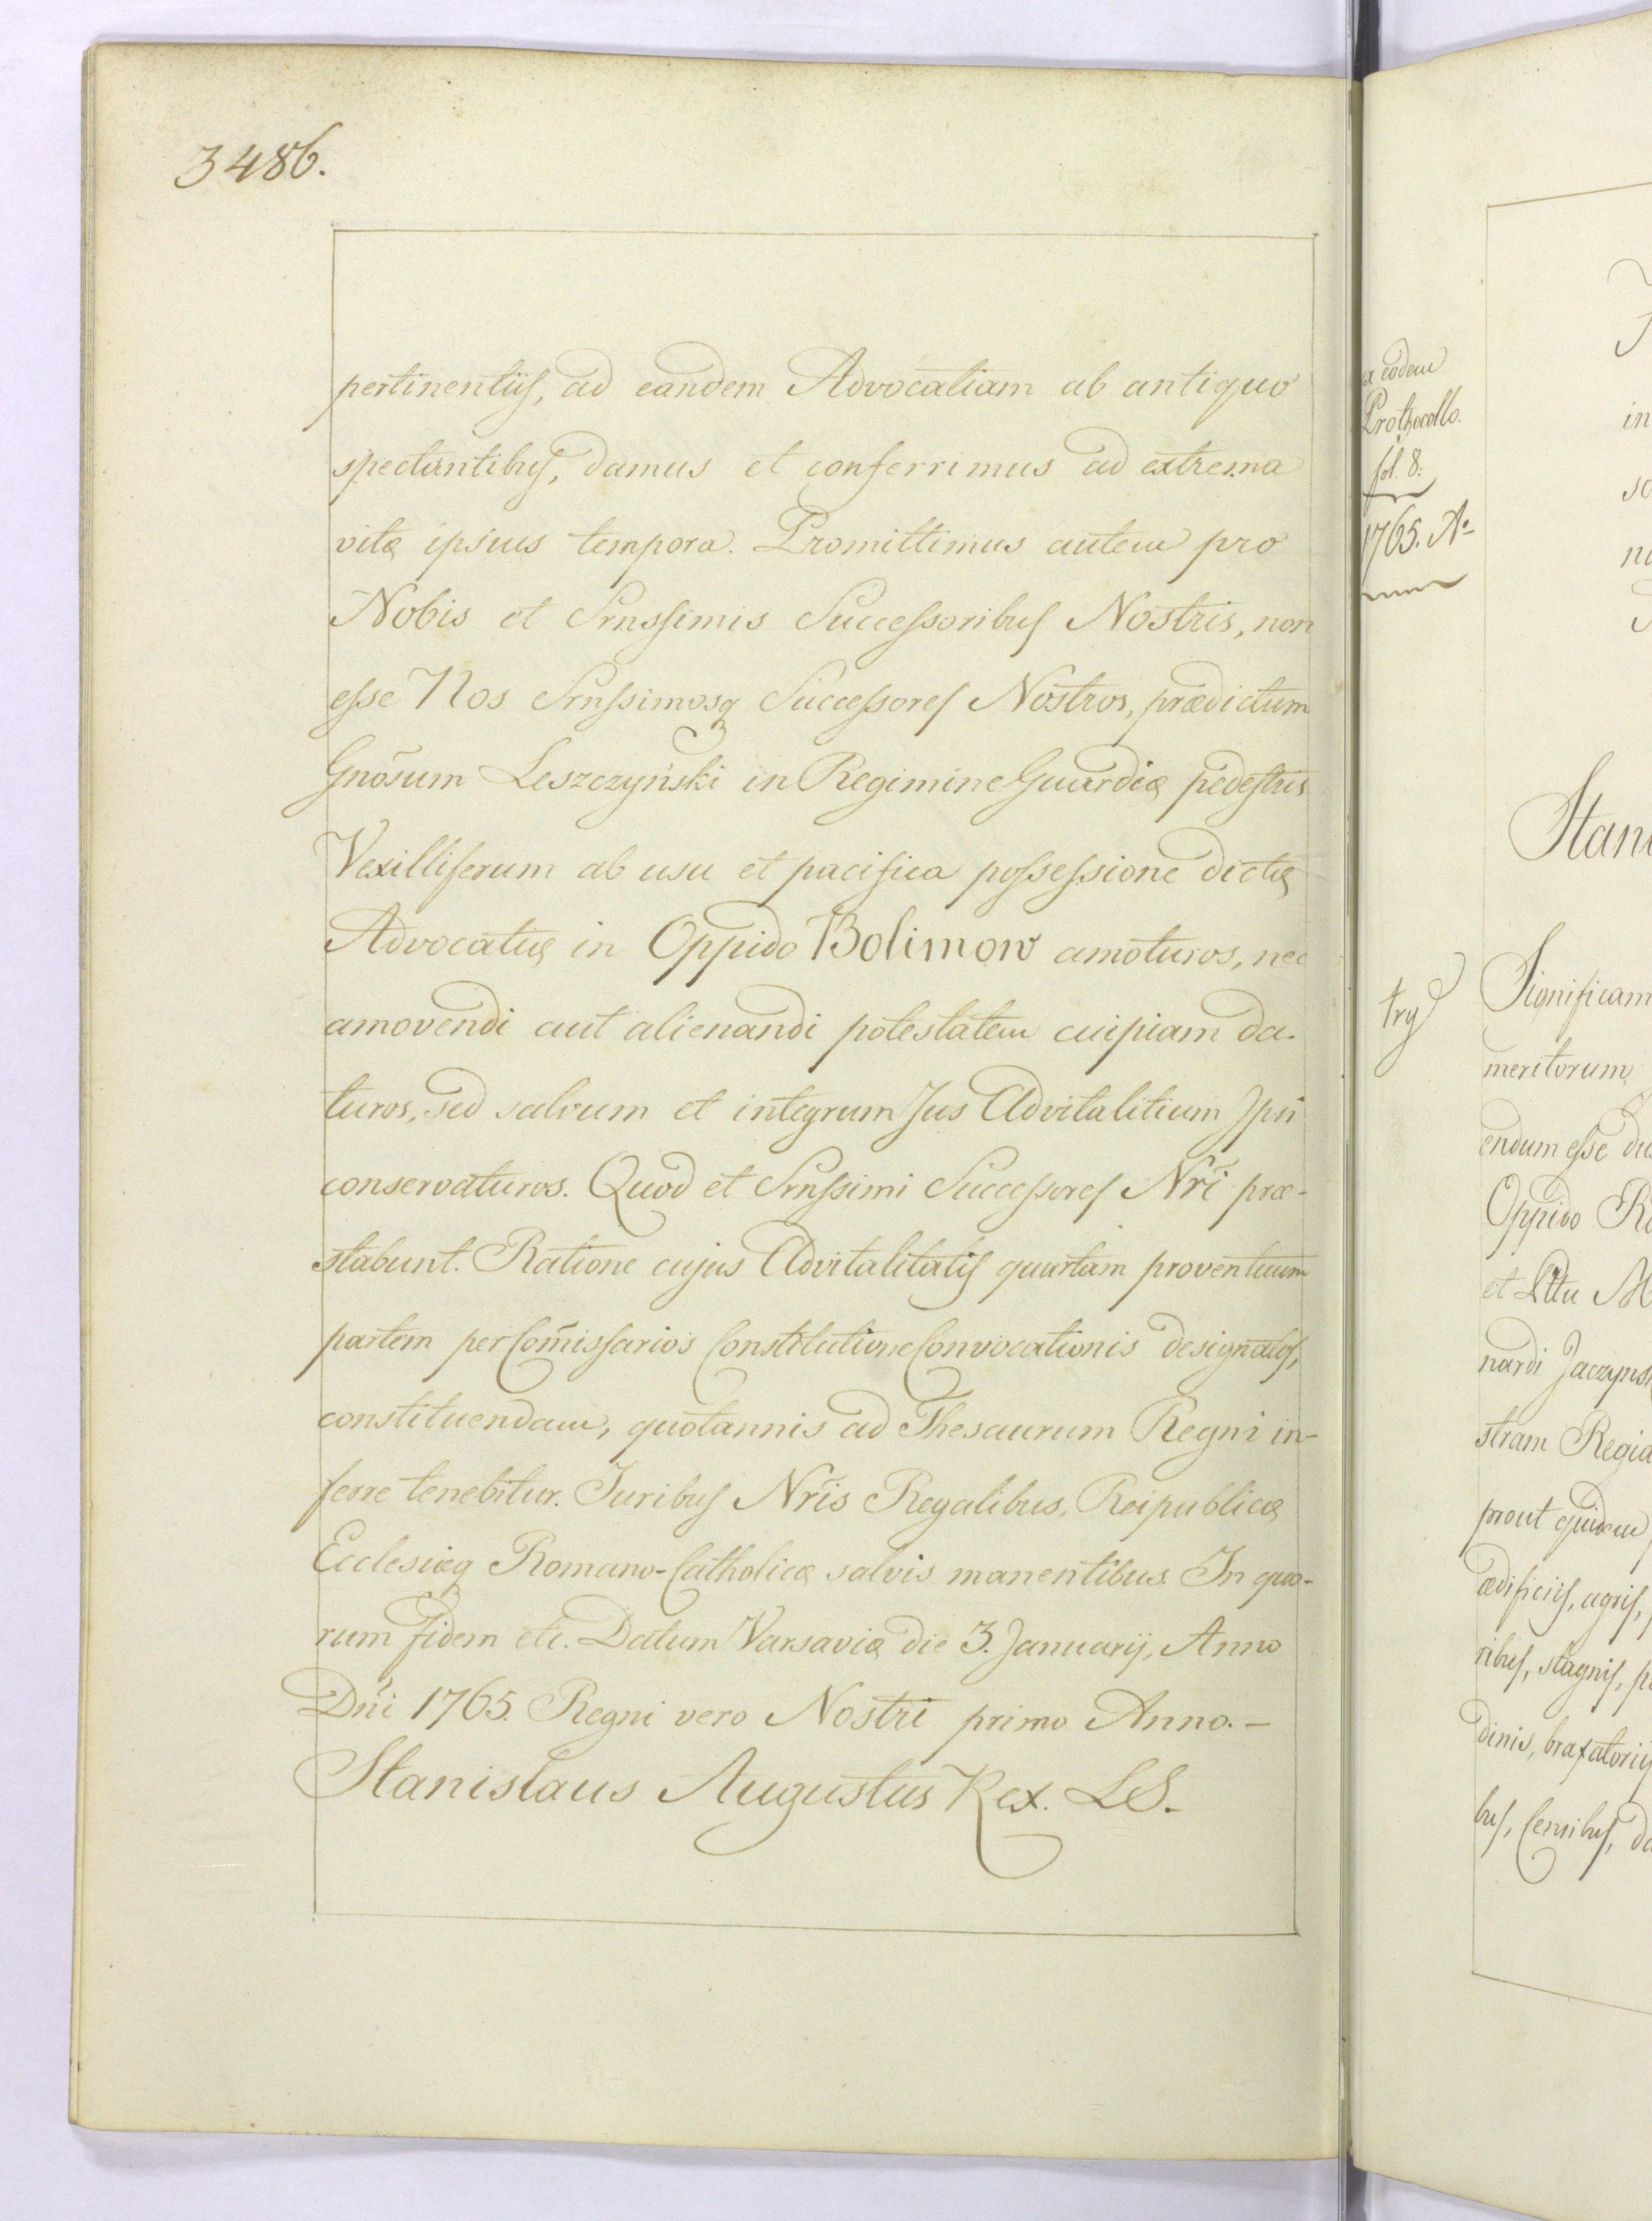 3486.
pertinentiis, ad eandem Advocatiam ab antiquo
spectantibus, damus et conferrimus ad extrema
vitæ ipsius tempora. Promittimus autem pro
Nobis et Srnssimis Successoribus Nostris, non
esse Nos Srnssimosq Successores Nostros, prædictum
Gnõsum Leszczyński in Regimine Guardiæ pedestris
Vexilliferum ab usu et pacifica possessione dictæ
Advocatiæ in Oppido Bolimow amoturos, nec
amovendi aut alienandi potestatem cuipiam da-
turos, sed salvum et integrum Jus Advitalitium Ipsi
conservaturos. Quod et Srnssimi Successores Nrĩ præ-
stabunt. Ratione cujus Advitalitatis quartam proventuum
partem per Com̃issarios Constitutione Convocationis designatos,
constituendam, quotannis ad Thesaurum Regni in-
ferre tenebitur. Juribus Nrĩs Regalibus, Reipublicæ
Ecclesiæq Romano-Catholicæ salvis manentibus. In quo-
rum fidem etc. Datum Varsaviæ die 3. Januarij, Anno
Dñi 1765. Regni vero Nostri primo Anno.-
Stanislaus Augustus Rex. LS.
ex eodem
Prothocollo.
fol. 8.
1765. A-
Stani
try
Significam
meritorum
endum esse du
Oppido R
et Littu M
nardi Jaczyns
stram Regia
prout quidem
ædificiis, agris,
ribus, stagnis, p
dinis, braxatoriis
bus, Censibus, da